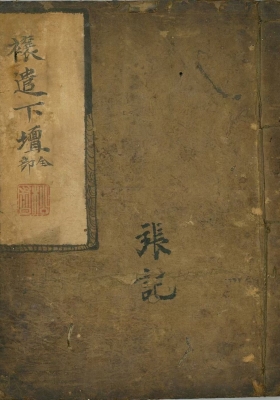 禳遣下壇
全部
張記